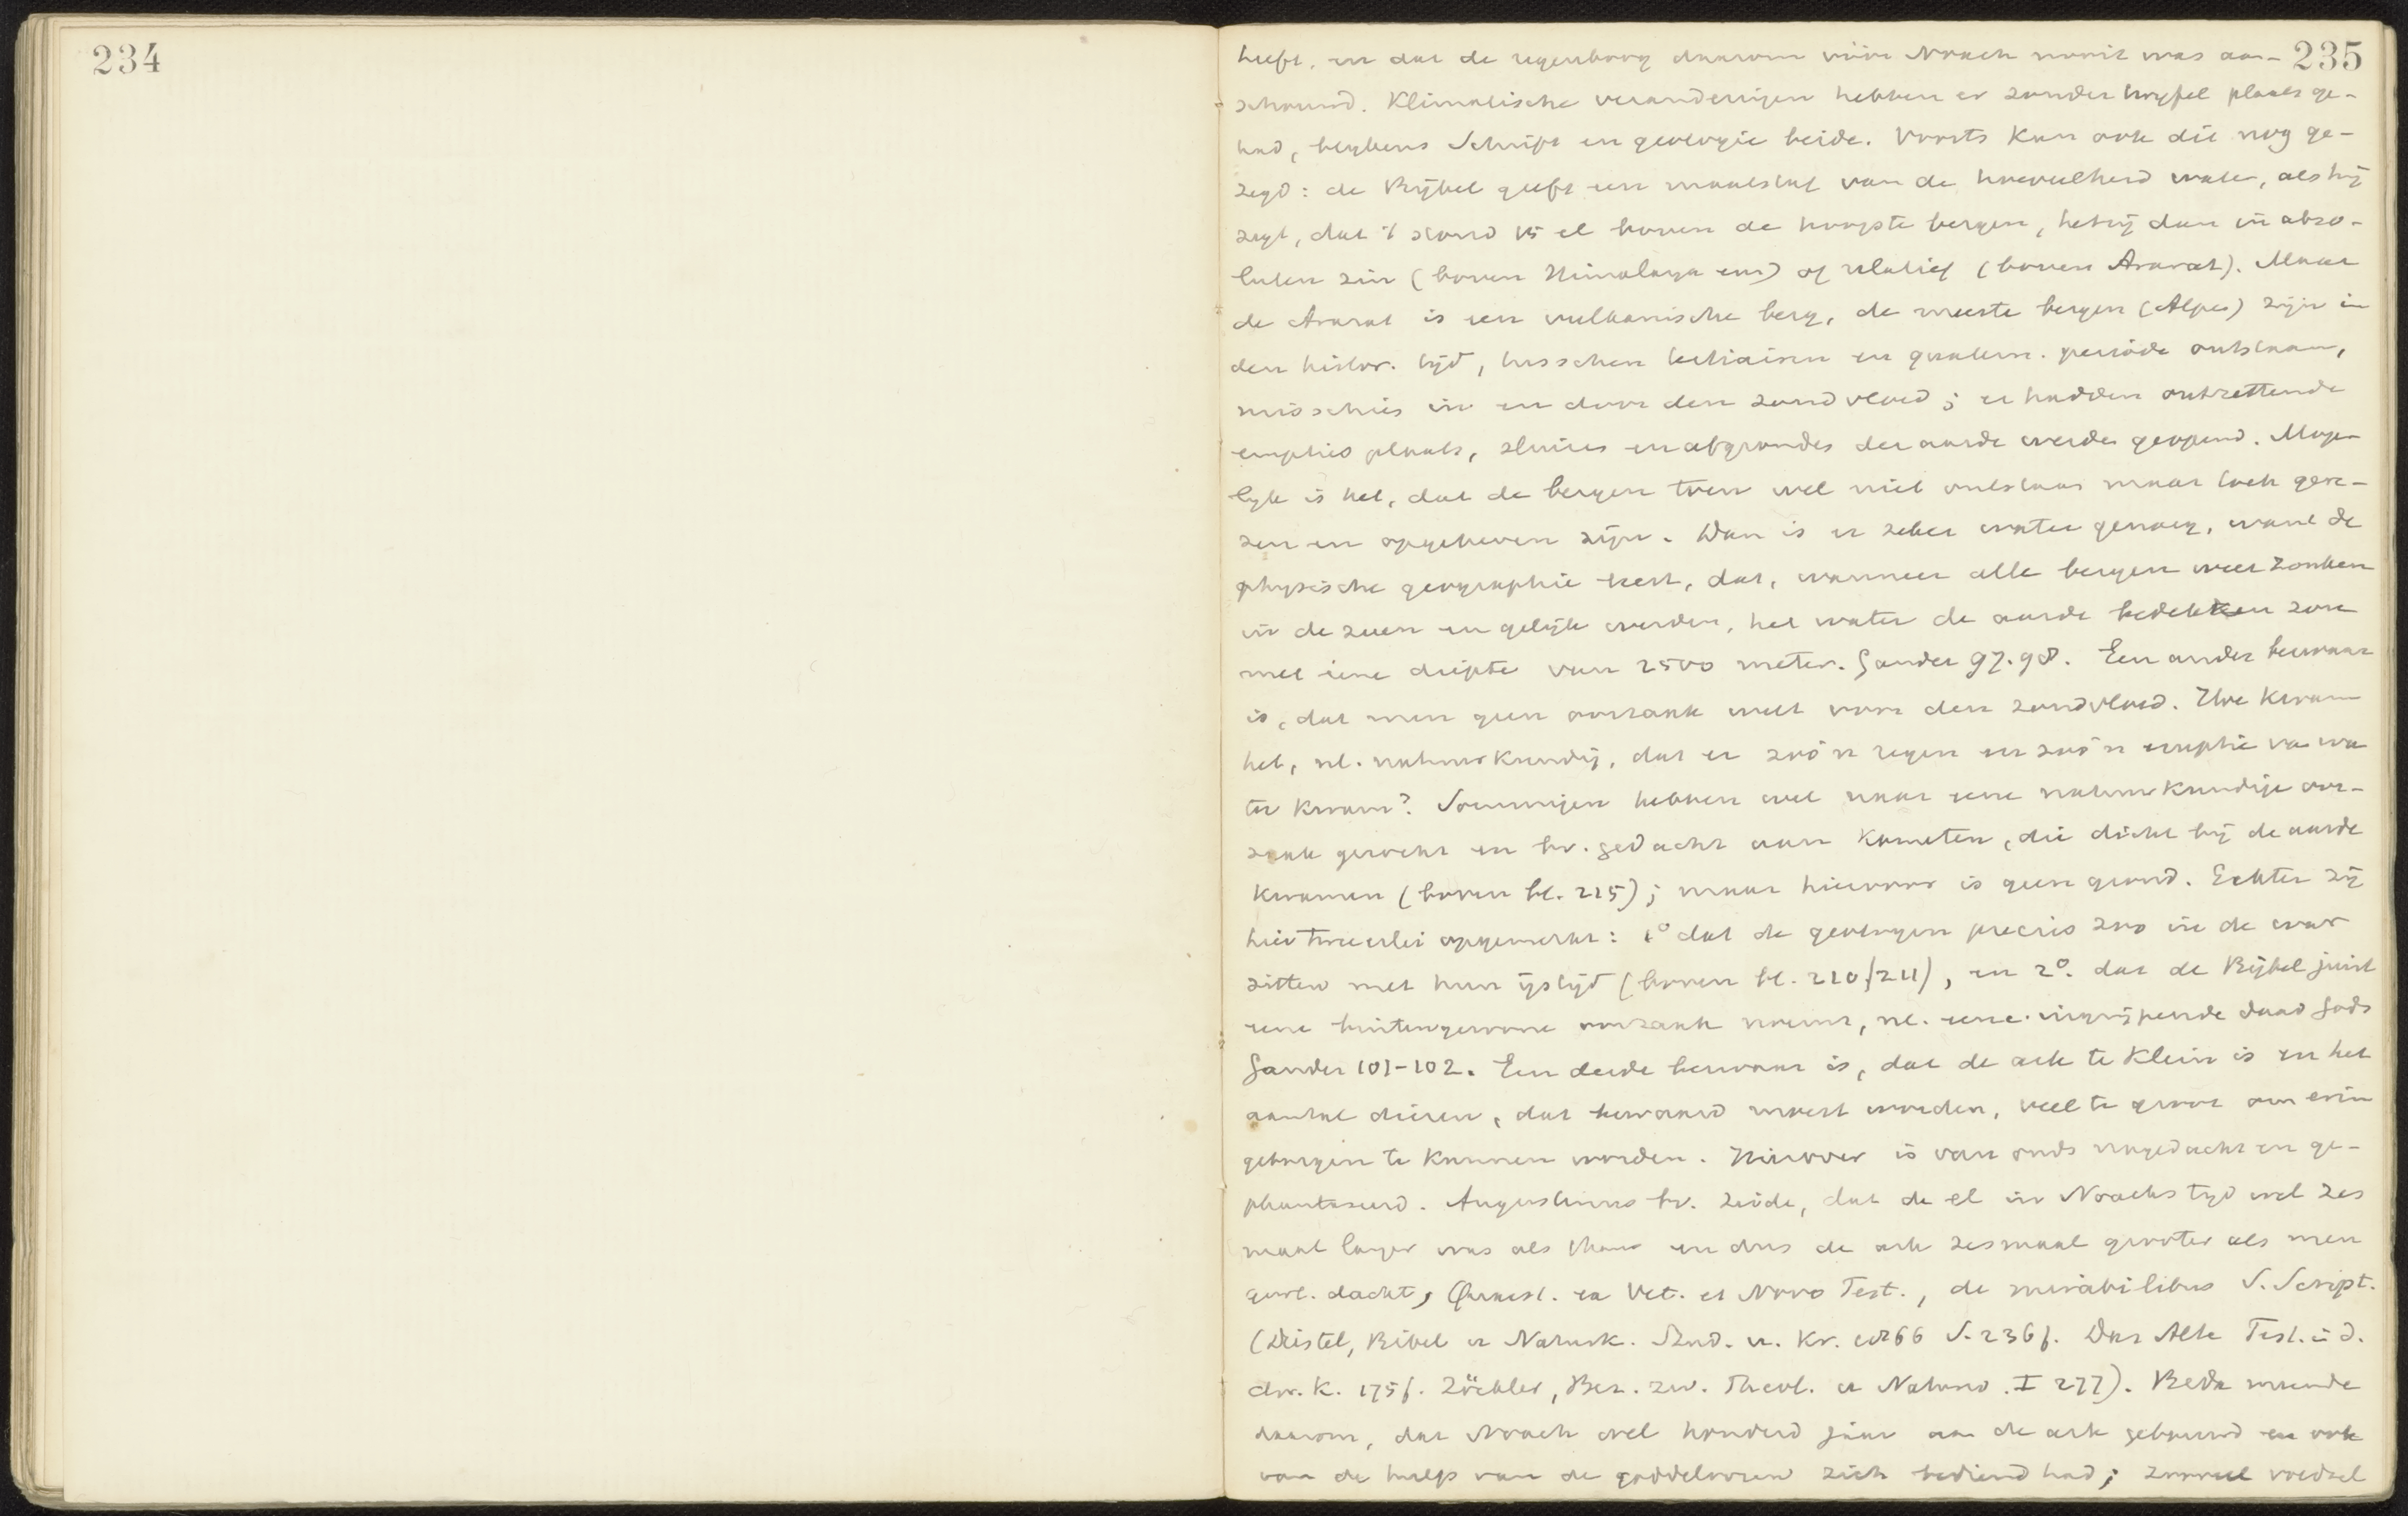 234
235
heeft, en dat de regenboog daarom vóór Noach nooit was aan-
schouwd. Klimatische veranderingen hebben er zonder twyfel plaats ge-
had, blykens Schrift en geologie beide. Voorts kan ook dit nog ge-
zegd: de Bijbel geeft een maatstaf van de hoeveelheid water, als hij
zegt, dat 't stond 15 el boven de hoogste bergen, hetzij dan in abso-
luten zin (boven Himalaya enz) of relatief (boven Ararat). Maar
de Ararat is een vulkanische berg, de meeste bergen (Alpen) zijn in
den histor. tijd, tusschen tertiairen en quatern. periode ontstaan,
misschien in en door den zondvloed; er hadden ontzettende
erupties plaats, sluizen en afgronden der aarde werden geopend. Moge-
lyk is het, dat de bergen toen wel niet ontstaan maar toch gere-
zen en opgeheven zijn. Dan is er zeker water genoeg, want de
physische geographie leert, dat, wanneer alle bergen weer zonken
in de zeeen en gelijk werden, het water de aarde bedekken zou
met eene diepte van 2500 meter. Gander 97.98. Een ander bezwaar
is, dat men geen oorzaak weet voor den zondvloed. Hoe kwam
het, nl. natuurkundig, dat er zoo'n regen en zoo'n eruptie van wa
ter kwam? Sommigen hebben wel naar eene natuurkundige oor-
zaak gezocht en bv. gedacht aan kometen, die dicht bij de aarde
kwamen (boven bl. 225); maar hiervoor is geen grond. Echter zij
hier tweeerlei opgemerkt: 1° dat de geologen precies zoo in de war
zitten met hun ijstijd (boven bl. 210/211), en 2°. dat de Bijbel juist
eene buitengewone oorzaak noemt, nl. eene ingrijpende daad Gods
Gander 101-102. Een derde bezwaar is, dat de ark te klein is en het
aantal dieren, dat bewaard moest worden, veel te groot om erin
geborgen te kunnen worden. Hierover is van ouds nagedacht en ge-
phantaseerd. Augustinus bv. zeide, dat de el in Noachs tyd wel zes
maal langer was als thans en dus de ark zesmaal grooter als men
gew. dacht, Quaest. ex Vet. et Novo Test., de mirabilibus S. Script.
(Diestel, Bibel u Naturk. Stud. u. Kr. 1866 S. 236f. Das Alte Test. i. d.
chr. K. 175f. Zöckler, Bez. zw. Theol. u Naturw. I 277). Beda meende
daarom, dat Noach wel honderd jaar aan de ark gebouwd en ook
van de hulp van de goddeloozen zich bediend had; zooveel voedsel